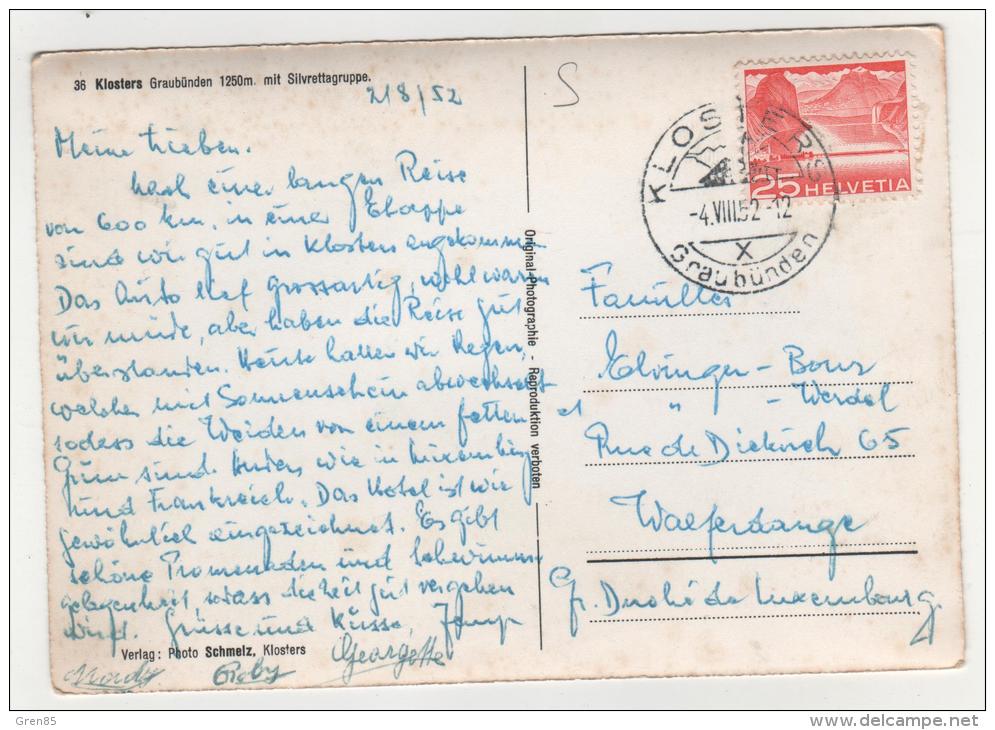 36 Klosters Graubünden 1250m. mit Silvrettagruppe.
2/8/52
Meine Lieben.
Nach einer langen Reise
von 600 km. in einer Etappe
sind wir gut in Klosters angekommen
Das Auto lief grossartig, wohl waren
wir müde, aber haben die Reise gut
überstanden. Heute hatten wir Regen,
welcher mit Sonnenschein abwechselt
sodass die Weiden von einem fetten
Grün sind. Anders wie in Luxemburg
und Frankreich. Das Hotel ist wie
gewöhnlich ausgezeichnet. Es gibt
schöne Promenaden und Schwimm
gelegenheit, sodass die Zeit gut vergehen
wird. Grüsse und Küsse, Jemp
Georgette
Verlag: Photo Schmelz, Klosters
Original-Photographie - Reproduktion verboten
S
KLOSTERS
-4.VIII.52-12
X
Graubünden
25 HELVETIA
Familles
Elvinger-Bour
et " -Werdel
Rue de Diekirch 65
Walferdange
Gr. Duché de Luxembourg
Gren85
delcampe.net